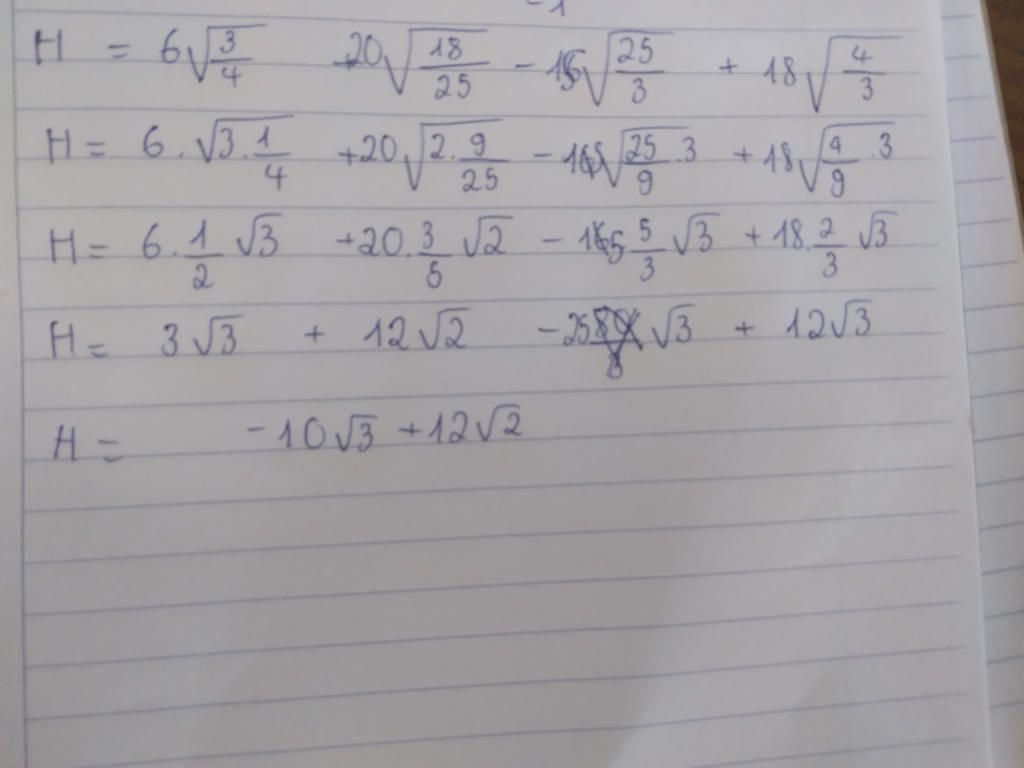 -1
H = 6√(3/4) +20√(18/25) - 15√(25/3) + 18√(4/3)
H = 6.√(3.1/4) +20√(2.9/25) - 15√(25/9 .3) + 18√(4/9 .3)
H = 6.1/2 √3 +20.3/5 √2 - 15 5/3 √3 + 18.2/3 √3
H = 3√3 + 12√2 - 25√3 + 12√3
H = -10√3 +12√2